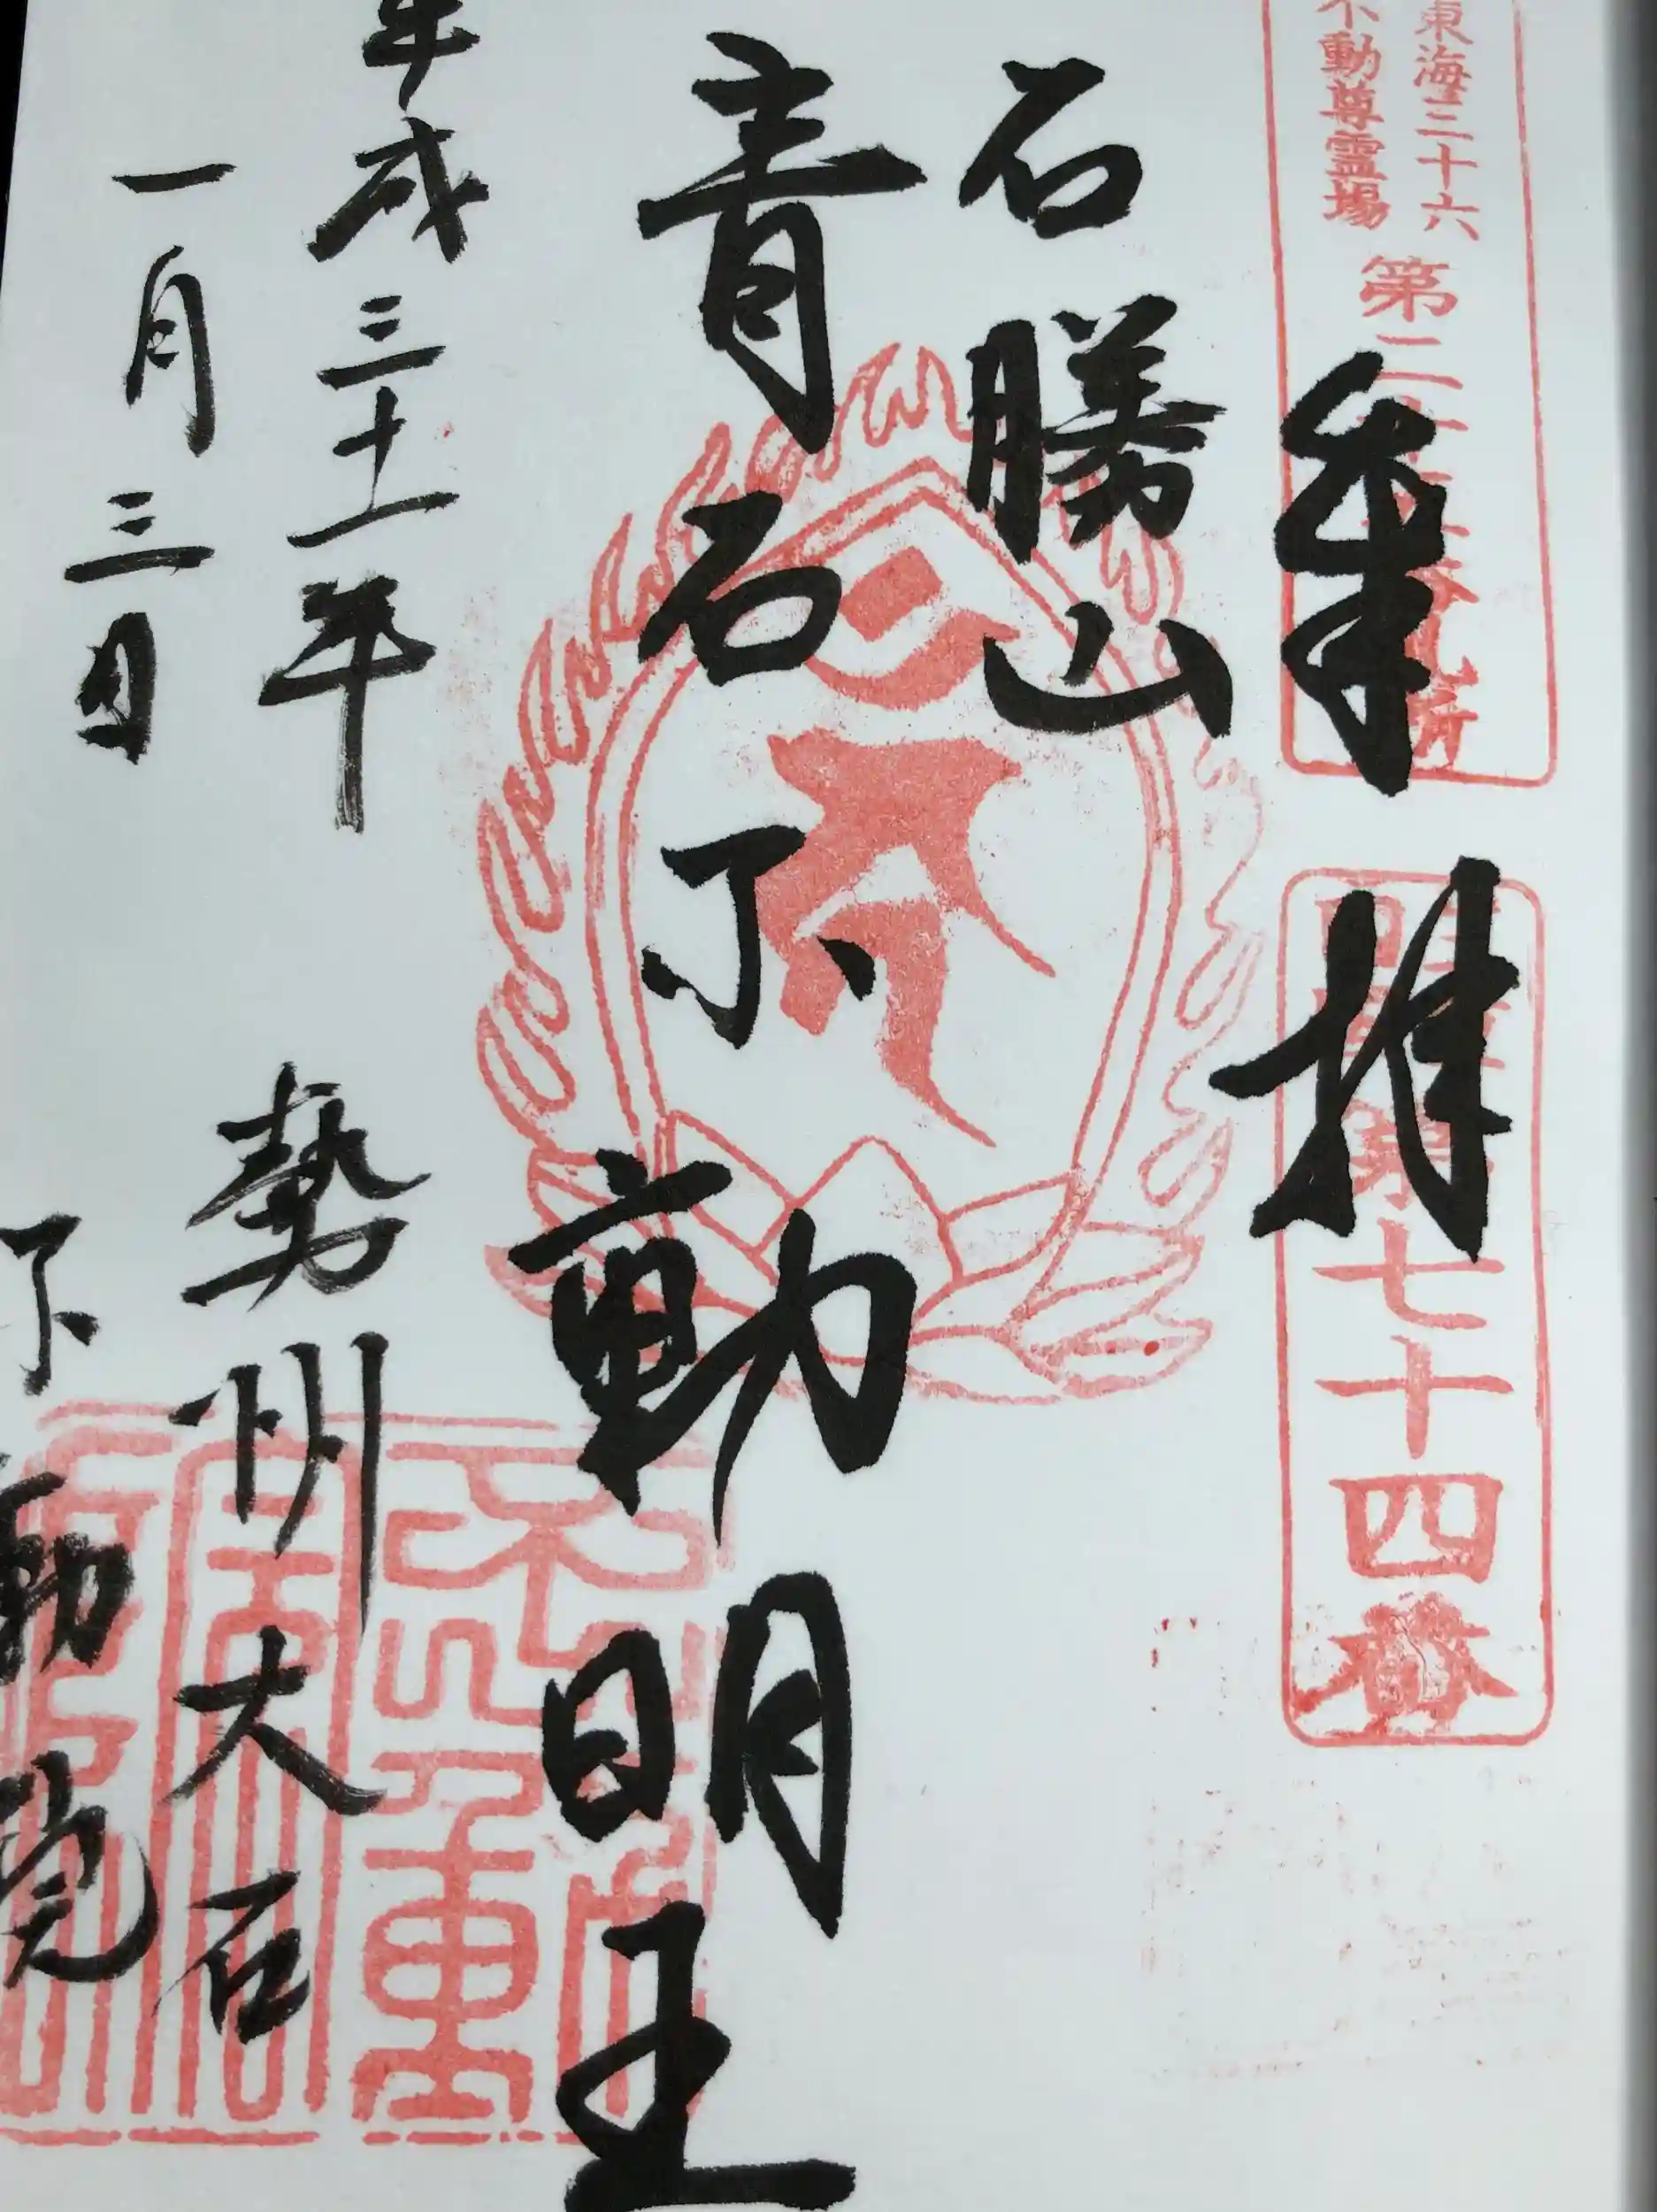 東海三十六
不動尊霊場
第二十
札所
第七十四番
奉拝
石勝山
青石不動明王
平成三十一年
一月三日
勢州大石
不動院